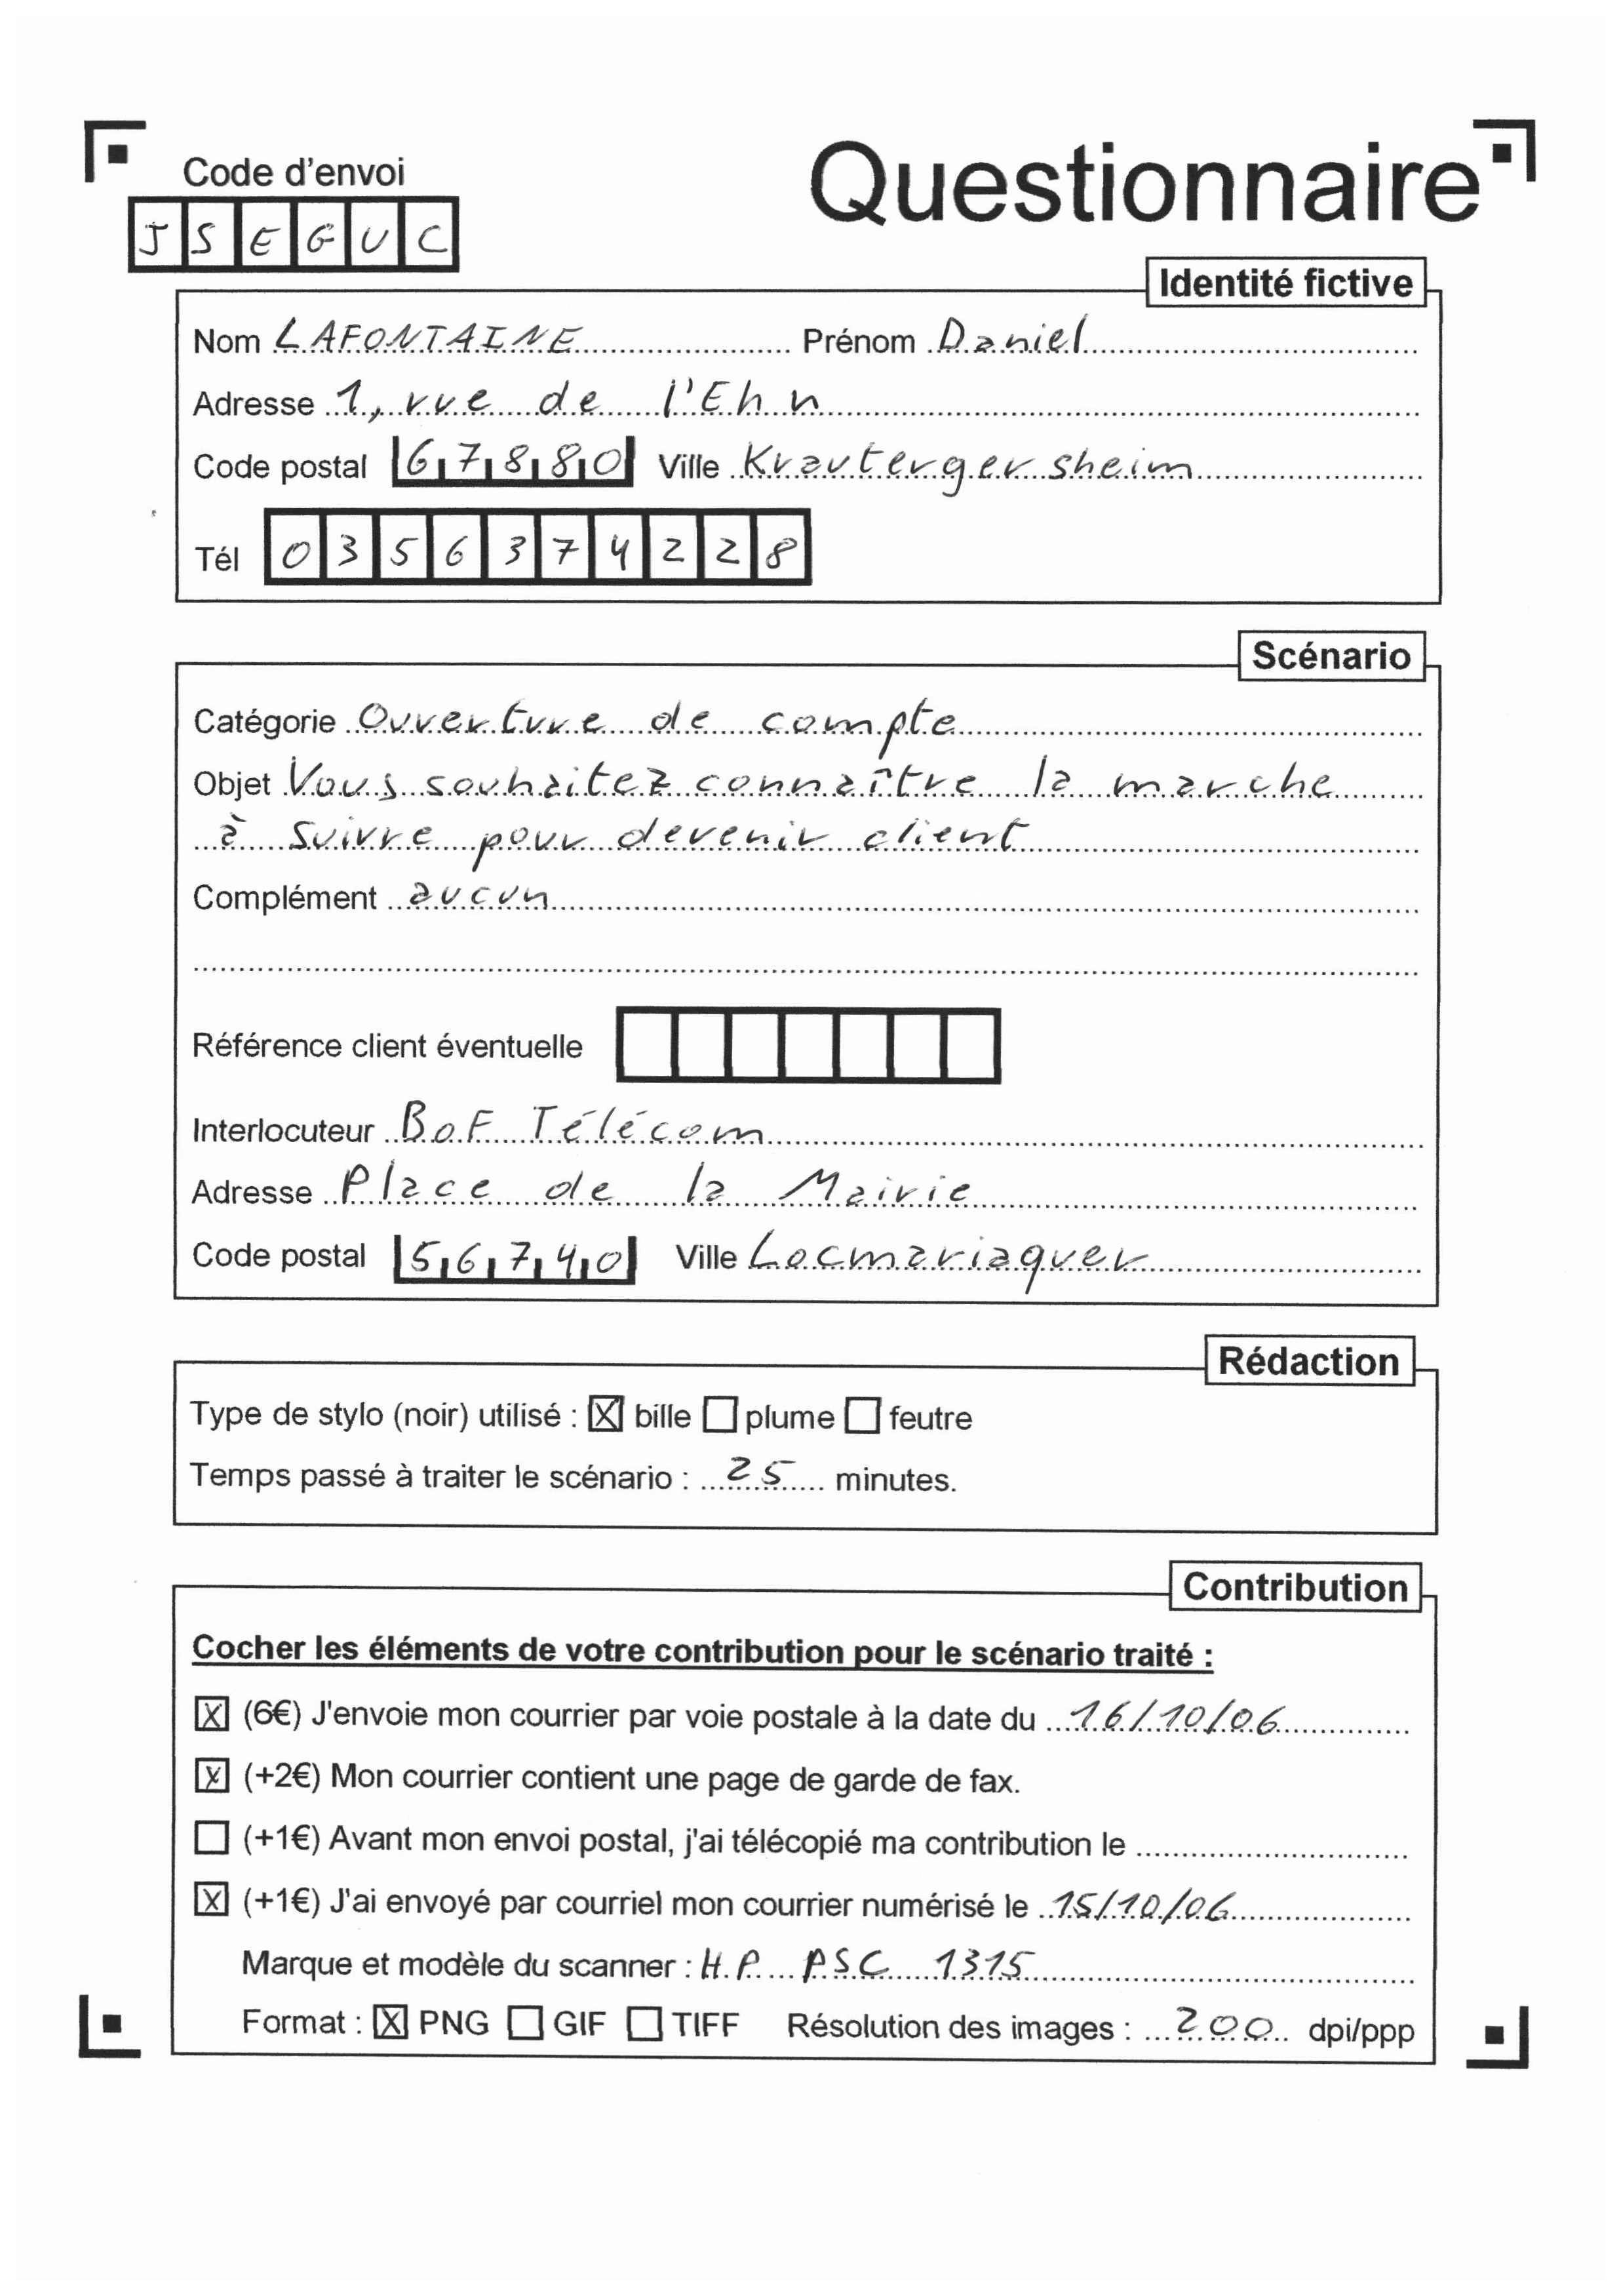 Code d'envoi
Questionnaire
JSEGUC
Identité fictive
Nom LAFONTAINE Prénom Daniel
Adresse 1, rue de l'Ehn
Code postal 67880 Ville Krautergersheim
Tél 0356374228
Scénario
Catégorie Ouverture de compte
Objet Vous souhaitez connaître la marche
à suivre pour devenir client
Complément aucun
Référence client éventuelle
Interlocuteur BoF Télécom
Adresse Place de la Mairie
Code postal 56740 Ville Locmariaquer
Rédaction
Type de stylo (noir) utilisé : X bille plume feutre
Temps passé à traiter le scénario : 25 minutes.
Contribution
Cocher les éléments de votre contribution pour le scénario traité :
X (6€) J'envoie mon courrier par voie postale à la date du 16/10/06
X (+2€) Mon courrier contient une page de garde de fax.
(+1€) Avant mon envoi postal, j'ai télécopié ma contribution le
X (+1€) J'ai envoyé par courriel mon courrier numérisé le 15/10/06
Marque et modèle du scanner : H.P. PSC 1315
Format : X PNG GIF TIFF Résolution des images : 200 dpi/ppp